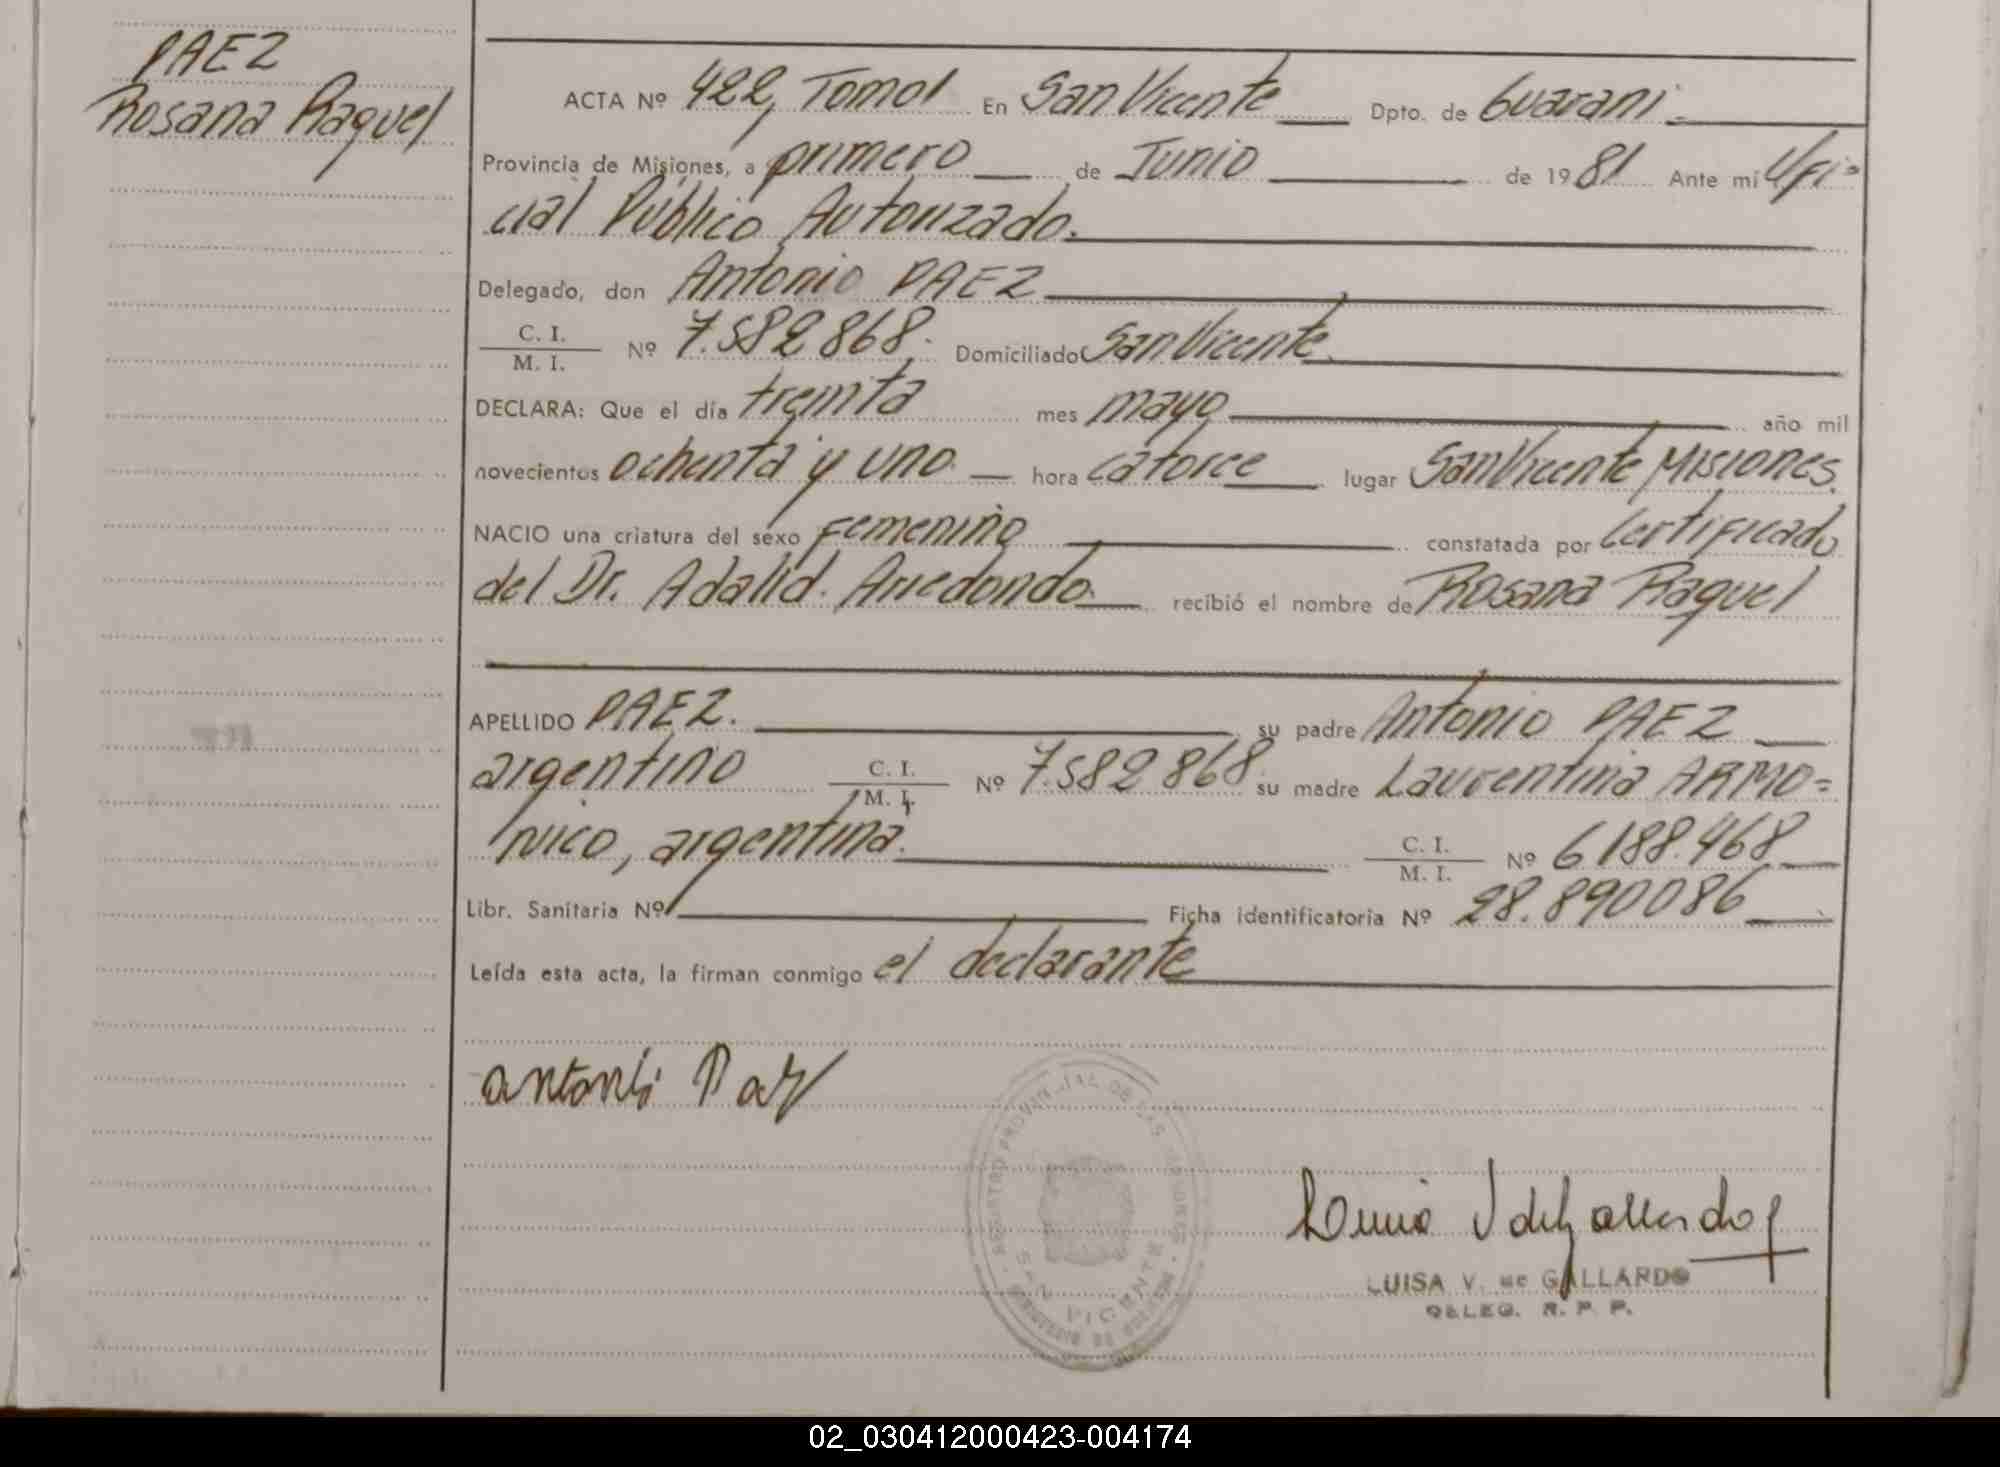 PAEZ
Rosana Raquel
ACTA Nº 422, Tomo I En San Vicente Dpto. de Guarani.
Provincia de Misiones, a primero de Junio de 1981 Ante mí Ofi=
cial Público Autorizado.
Delegado, don Antonio PAEZ
C. I.
M. I. Nº 7.582868. Domiciliado San Vicente
DECLARA: Que el día treinta mes mayo año mil
novecientos ochenta y uno hora catorce lugar San Vicente Misiones.
NACIO una criatura del sexo Femenino constatada por Certificado
del Dr. Adalid. Arredondo. recibió el nombre de Rosana Raquel
APELLIDO PAEZ. su padre Antonio PAEZ
argentino C. I.
M. I. Nº 7.582868. su madre Laurentina ARMO=
NICO, argentina. C. I.
M. I. Nº 6188.468
Libr. Sanitaria Nº Ficha identificatoria Nº 28.890086
Leída esta acta, la firman conmigo el declarante
REGISTRO PROVINCIAL DE LAS PERSONAS
SAN VICENTE
LUISA V. de GALLARDO
DELEG. R. P. P.
02_030412000423-004174